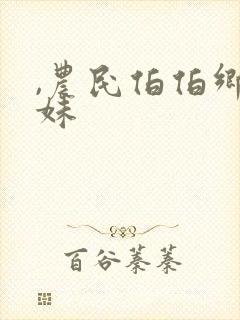 ,农民伯伯乡
妹
百谷蓁蓁